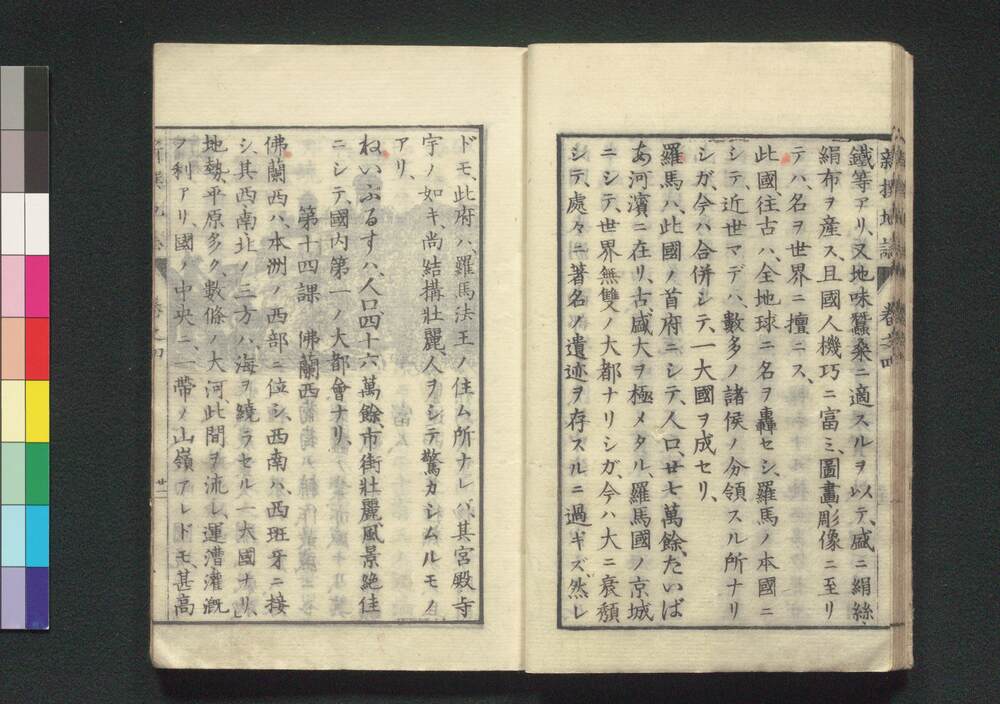 新撰地誌 卷之四
鐵等アリ、又地味蠶桑ニ適スルヲ以テ、盛ニ絹絲、
絹布ヲ産ス、且國人機巧ニ富ミ、圖畫、彫像ニ至リ
テハ、名ヲ世界ニ擅ニス、
此國、往古ハ、全地球ニ名ヲ轟セシ、羅馬ノ本國ニ
シテ、近世マデハ、數多ノ諸侯ノ分領スル所ナリ
シガ、今ハ合併シテ、一大國ヲ成セリ、
羅馬ハ、此國ノ首府ニシテ、人口、廿七萬餘、たいば
あ河濱ニ在リ、古盛大ヲ極メタル、羅馬國ノ京城
ニシテ、世界無雙ノ大都ナリシガ、今ハ大ニ衰頽
シテ、處々ニ著名ノ遺迹ヲ存スルニ過ギズ、然レ
ドモ、此府ハ、羅馬法王ノ住ム所ナレバ、其宮殿寺
宇ノ如キ、尚結搆壮麗、人ヲシテ驚カシムルモノ
アリ、
ねいぷるすハ、人口四十六萬餘、市街壯麗、風景絶佳
ニシテ、國内第一ノ大都會ナリ、
第十四課 佛蘭西
佛蘭西ハ、本洲ノ西部ニ位シ、西南ハ、西班牙ニ接
シ、其西、南、北ノ三方ハ、海ヲ繞ラセル一大國ナリ、
地勢、平原多ク、數條ノ大河、此間ヲ流レ、運漕灌漑
ノ利アリ、國ノ中央ニ、一帶ノ山嶺アレドモ、甚高
廿一